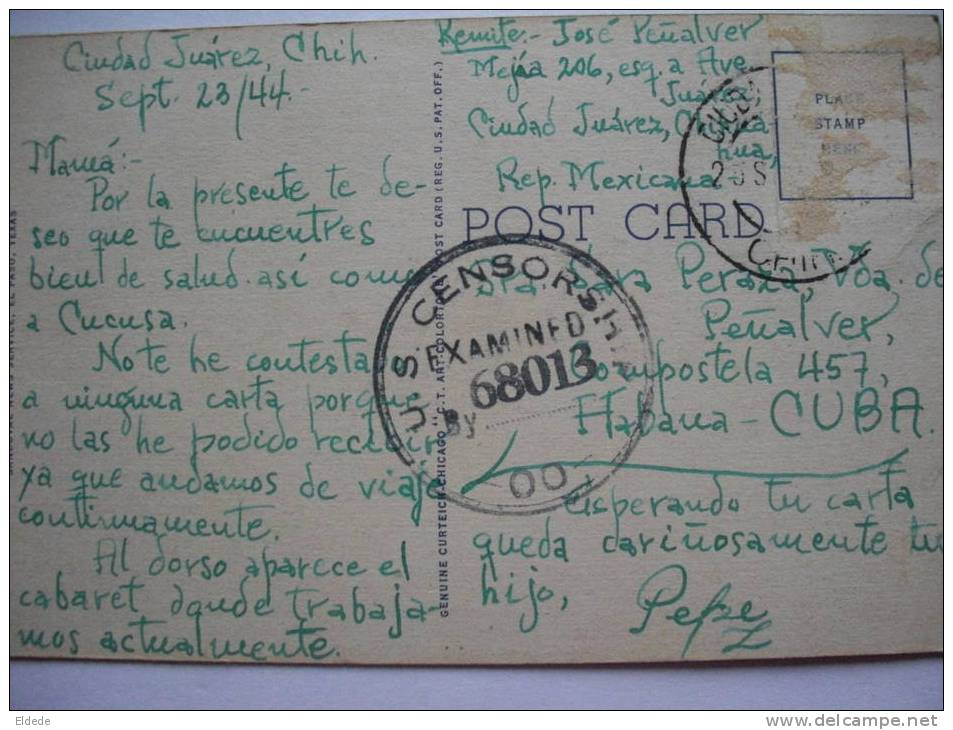 Ciudad Juárez, Chih.
Sept. 23/44.-
Mamá:-
Por la presente te de-
seo que te encuentres
bien de salud así como
a Cucusa.
No te he contesta
a ninguna carta porque
no las he podido recibir
ya que andamos de viaje
continuamente.
Al dorso aparece el
cabaret donde trabaja-
mos actualmente.
Remite:- José Peñalver
Mejía 206, esq. a Ave.
Juárez,
Ciudad Juárez, Chihua-
hua,
Rep. Mexicana-
POST CARD
PLACE
STAMP
HERE
Sra. Sara Peraza, Vda. de
Peñalver,
Compostela 457,
Habana - CUBA.
esperando tu carta
queda cariñosamente tu
hijo,
Pepe
U.S. CENSORSHIP
EXAMINED
By 68013
00
GENUINE CURTEICH-CHICAGO "C.T. ART-COLORTONE" POST CARD (REG. U.S. PAT. OFF.)
EL PASO, TEXAS
Eldede
www.delcampe.net